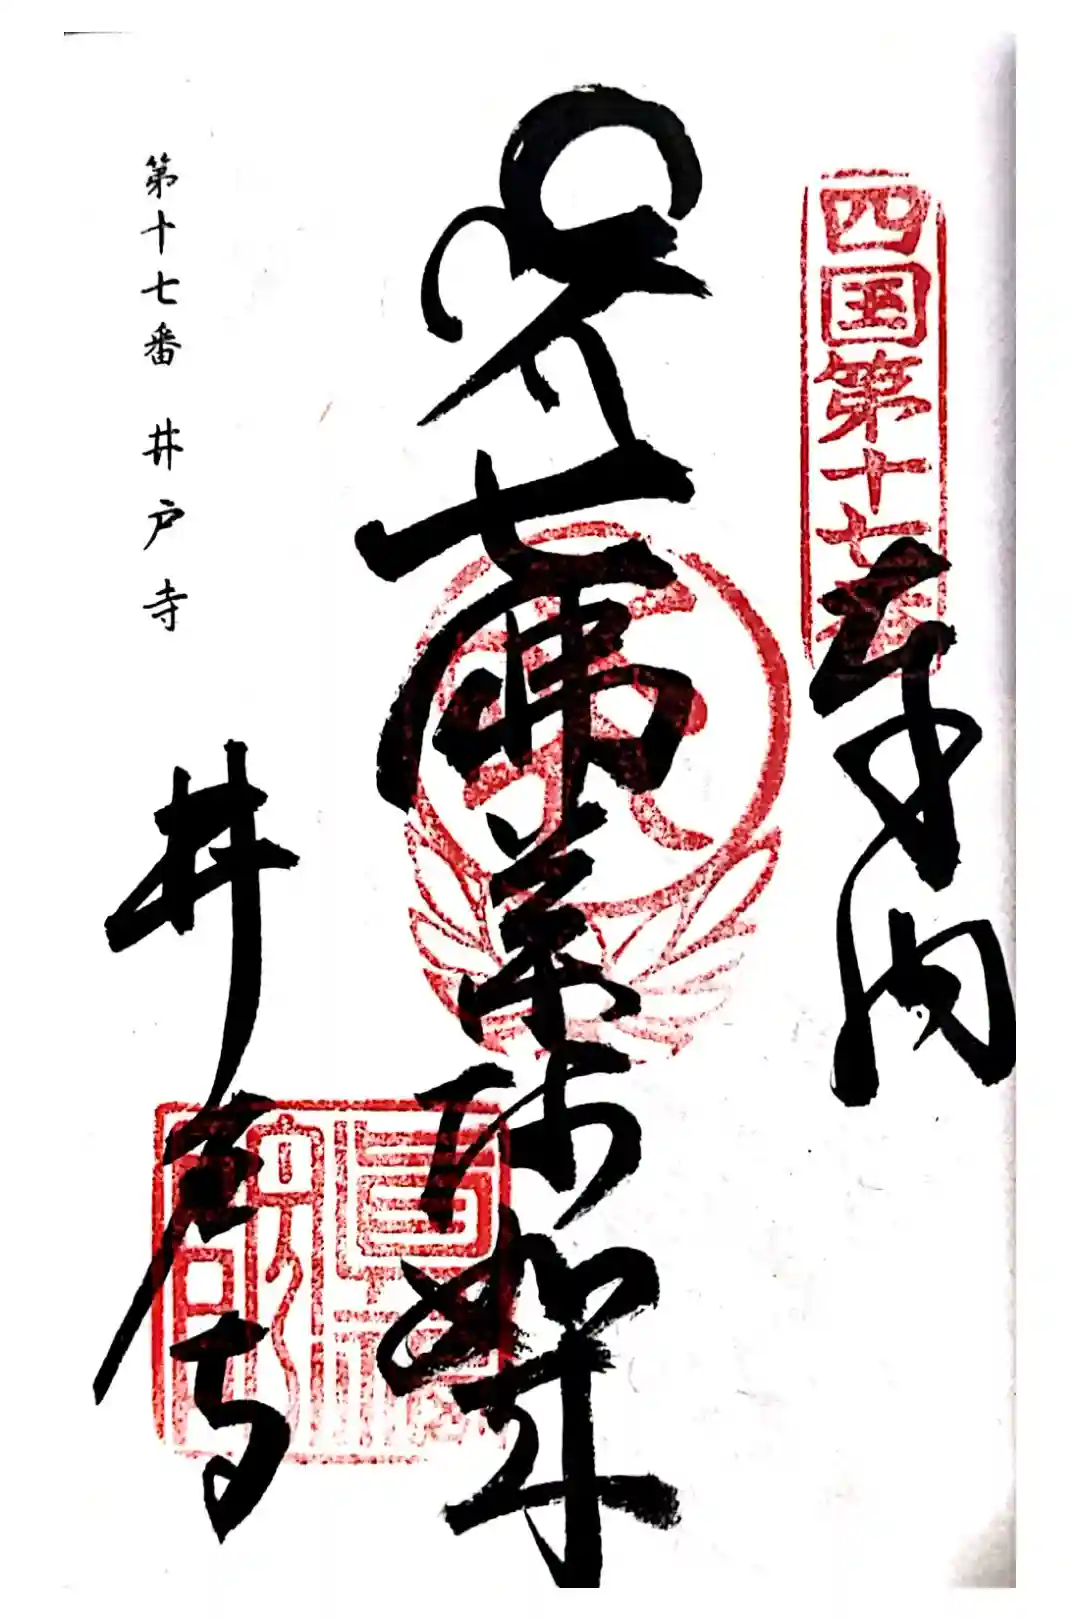 四国第十七番
奉納
七佛薬師如来
井戸寺
第十七番 井戸寺